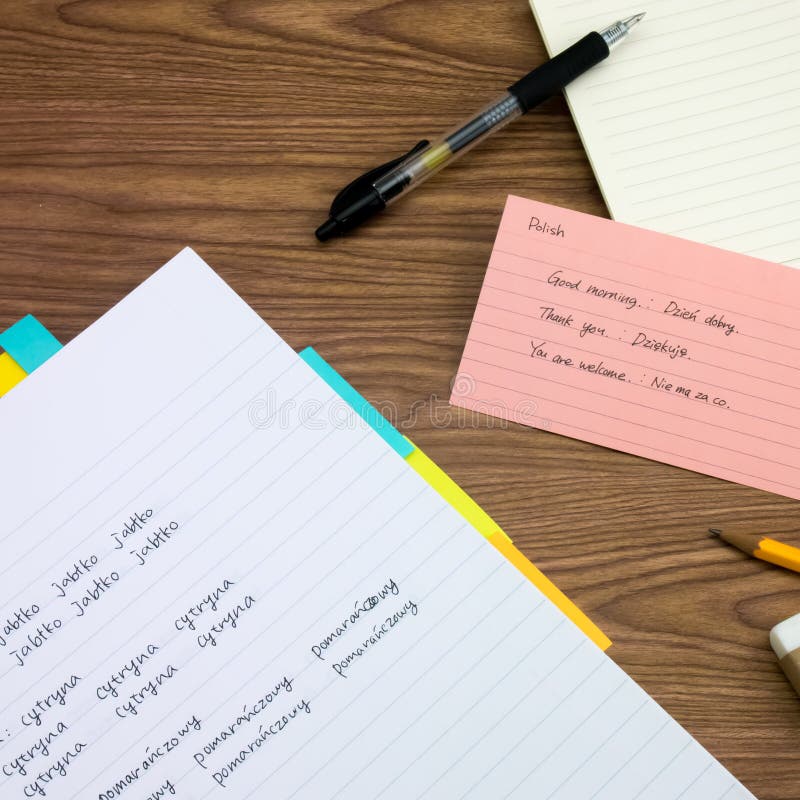 Polish
Good morning. : Dzień dobry.
Thank you. : Dziękuję.
You are welcome. : Nie ma za co.
jabłko jabłko jabłko
jabłko jabłko jabłko
: cytryna
cytryna cytryna cytryna
cytryna cytryna cytryna
pomarańczowy
pomarańczowy pomarańczowy
pomarańczowy pomarańczowy
dreamstime